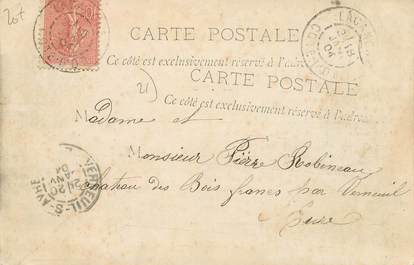 20f
CARTE POSTALE
Ce côté est exclusivement réservé à l'adre
CARTE POSTALE
Ce côté est exclusivement réservé à l'adre
21
Madame et
Monsieur Pierre Robineau
chateau des Bois francs par Verneuil
Eure
VERNEUIL-S-AVRE
20
JANV
04
18
04